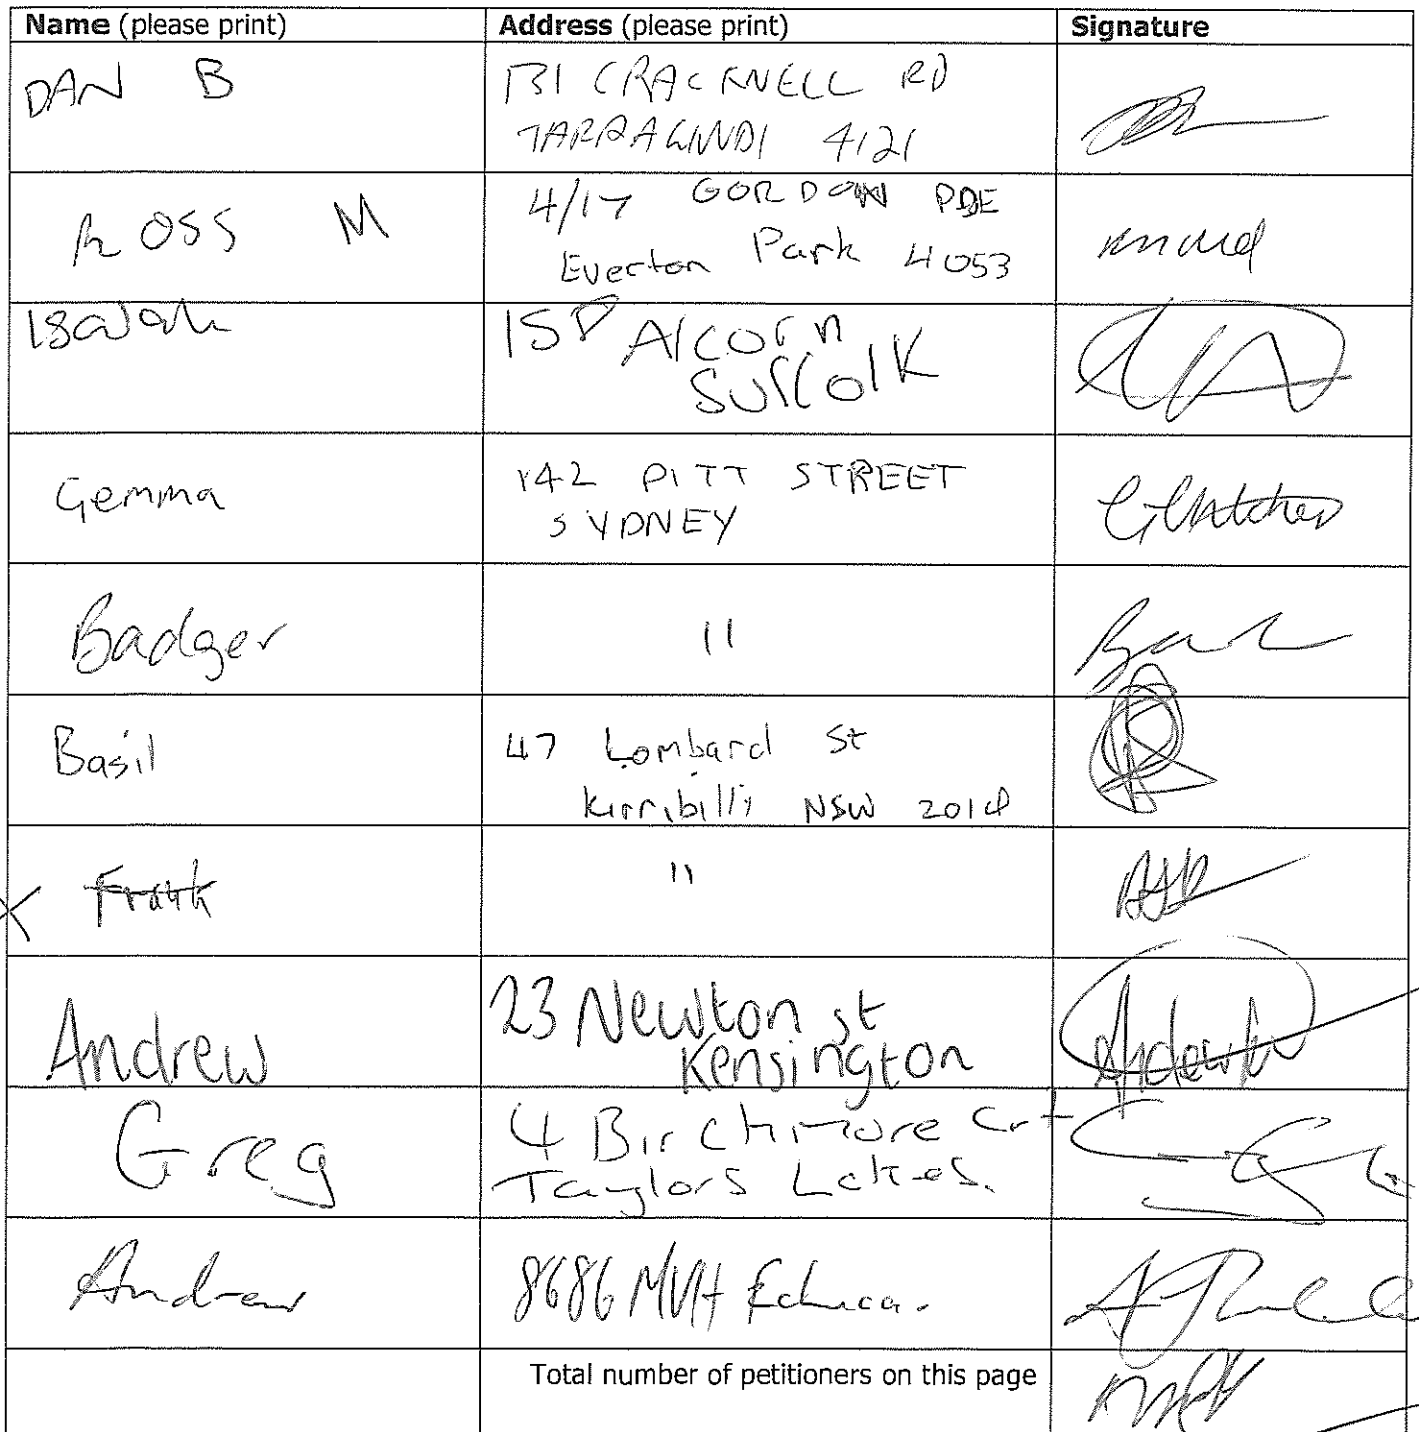 Name (please print) Address (please print) Signature
DAN B
131 CRACKNELL RD
TARRAGINDI 4121
ROSS M
4/17 GORDON PDE
Everton Park 4053
Isaiah
15D Alcorn
Suffolk
Gemma
142 PITT STREET
SYDNEY
Badger
"
Basil
47 Lombard St
Kirribilli NSW
X Frank
"
Andrew
23 Newton st
Kensington
Greg
4 Birchmore Crt
Taylors Lakes.
Andrew
8686 MVH Echuca.
Total number of petitioners on this page